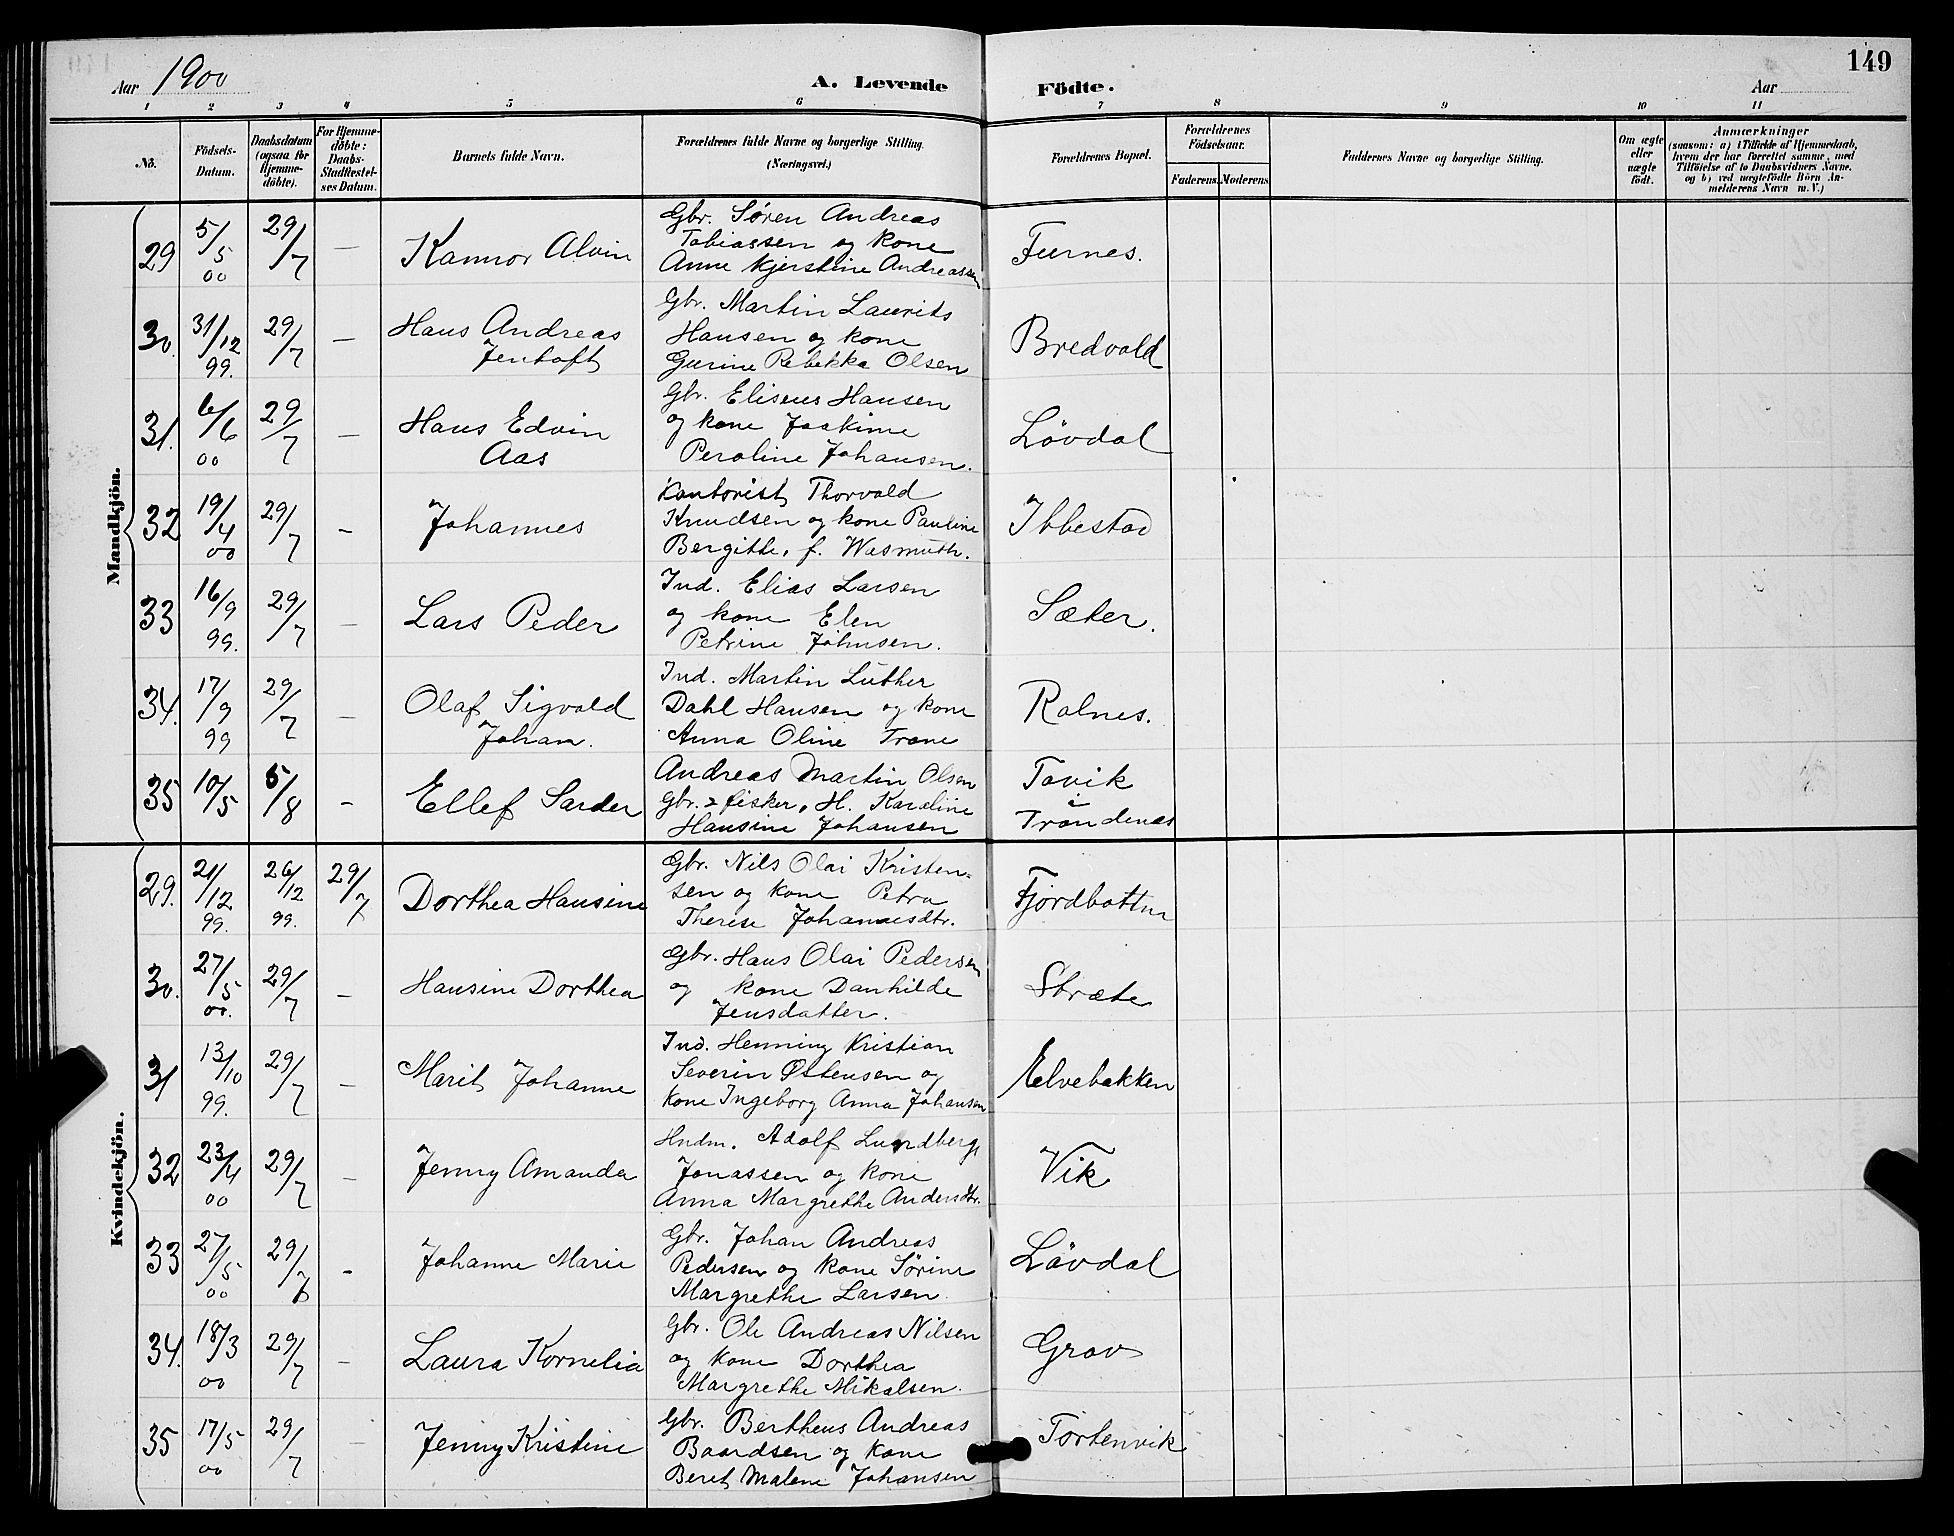 Aar 1900
A. Levende Födte.
Aar
149
1 2 3 4 5 6 7 8 9 10 11
No.
Födsels-Datum.
Daabsdatum (ogsaa for Hjemme-döbte).
For Hjemme-döbte: Daabs-Stadfæstel-ses Datum.
Barnets fulde Navn.
Forældrenes fulde Navne og borgerlige Stilling.
(Næringsvei.)
Forældrenes Bopæl.
Forældrenes Födselsaar.
Faderens. Moderens.
Faddernes Navne og borgerlige Stilling.
Om ægte eller uægte födt.
Anmærkninger
(saasom: a) i Tilfælde af Hjemmedaab,
hvem der har forrettet samme, med
Tilföielse af to Daabsvidners Navne,
og b) ved uægtefödte Börn An-
melderens Navn m. V.)
Mandkjön.
29 5/5 00 29/7 — Kannor Alvin
Gbr. Søren Andreas
Tobiassen og kone
Anne Kjerstine Andreassen
Furnes.
30. 31/12 99. 29/7 — Hans Andreas
Jentoft
Gbr. Martin Laurits
Hansen og kone
Gurine Rebekka Olsen
Bredvold
31. 6/6 00 29/7 — Hans Edvin
Aas
Gbr. Eliseus Hansen
og kone Joakime
Peroline Johansen.
Lövdal
32 19/4 00 29/7 — Johannes
Kontorist Thorvald
Knudsen og kone Pauline
Bergitte, f. Wasmuth.
Ibbestad
33 16/9 99. 29/7 — Lars Peder
Ind. Elias Larsen
og kone Elen
Petrine Johnsen.
Sæter.
34. 17/9 99 29/7 — Olaf Sigvald
Johan.
Ind. Martin Luther
Dahl Hansen og kone
Anna Oline Trane
Rolnes.
35 10/5 5/8 — Ellef Sarder
Andreas Martin Olsen
Gbr. & fisker, H. Karoline
Hansine Johansen
Tovik
i
Trondenæs
Kvindekjön.
29. 21/12 99. 26/12 99. 29/7 Dorthea Hansine
Gbr. Nils Olai Kristen-
sen og kone Petra
Therese Johannesdtr.
Fjordbotten
30. 27/5 00. 29/7 — Hansine Dorthea
Gbr. Hans Olai Pedersen
og kone Danhilde
Jensdatter.
Stræte
31 13/10 99. 29/7 — Marit Johanne
Ind. Henning Kristian
Severin Østensen og
kone Ingeborg Anna Johansen
Elvebakken
32 23/4 00 29/7 — Jenny Amanda
Hndm. Adolf Lundberg
Jonassen og kone
Anna Margrethe Andersdtr.
Vik
33 27/5 00 29/7 — Johanne Marie
Gbr. Johan Andreas
Pedersen og kone Sørine
Margrethe Larsen.
Lövdal
34. 18/3 00 29/7 — Laura Kornelia
Gbr. Ole Andreas Nilsen
og kone Dorthea
Margrethe Mikalsen.
Grov
35 17/5 00 29/7 — Jenny Kristine
Gbr. Bertheus Andreas
Baardsen og kone
Beret Malene Johansen
Törtenvik